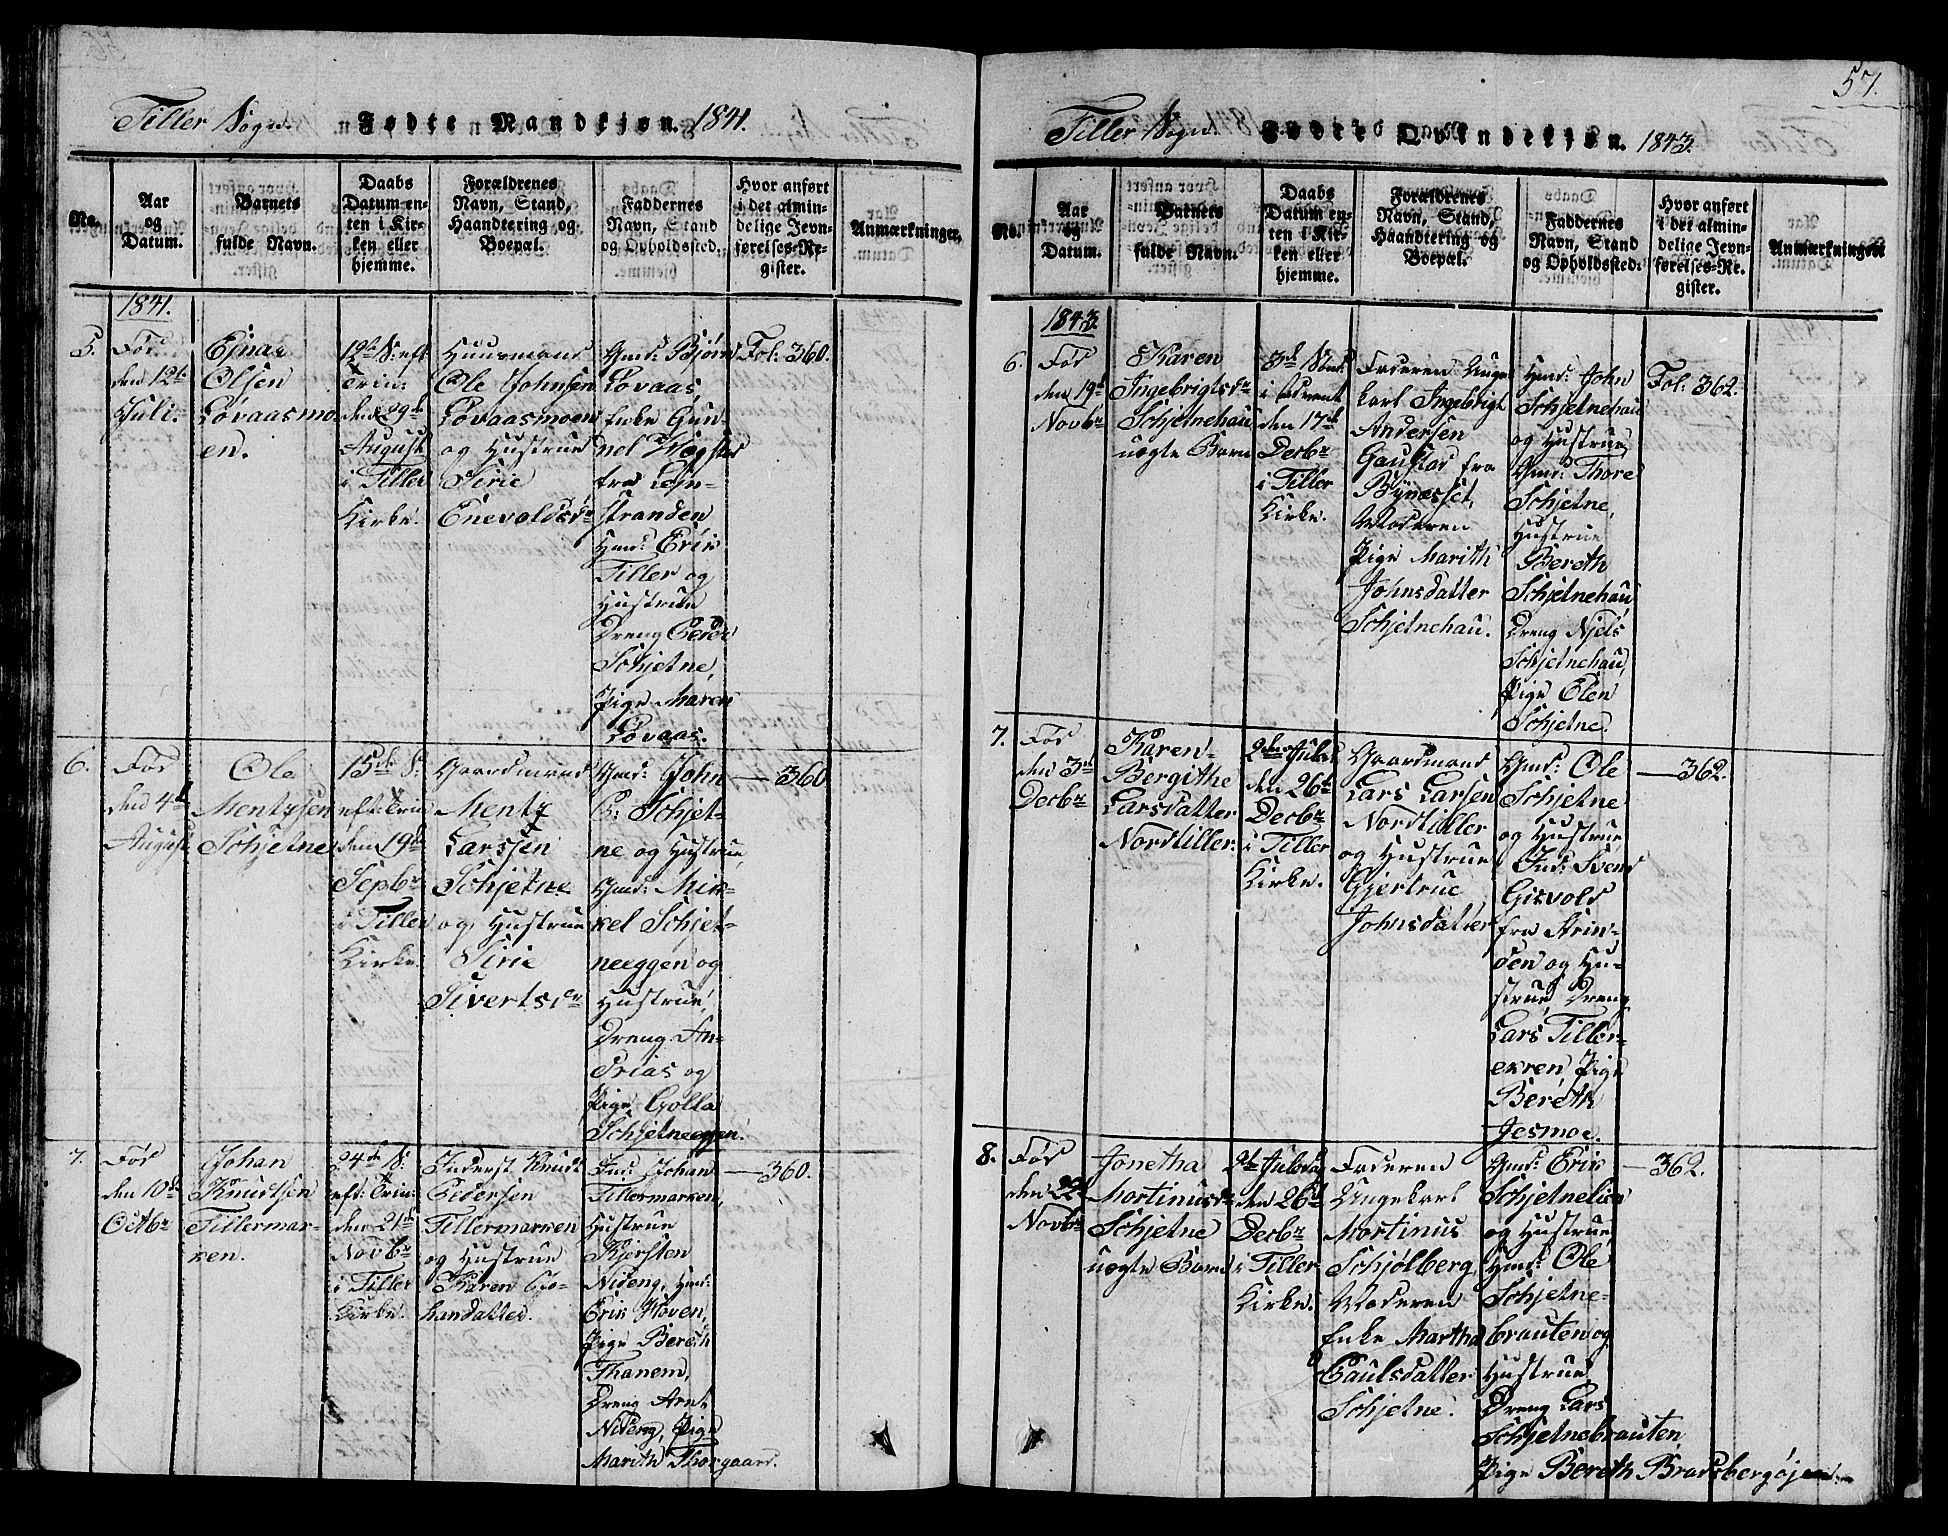 57.
Tiller Sogn. Fødte Mandkjøn. 1841.
No.
Aar
og
Datum.
Barnets
fulde Navn.
Daabs
Datum en-
ten i Kir-
ken eller
hjemme.
Forældrenes
Navn, Stand,
Haandtering og
Boepæl.
Faddernes
Navn, Stand
og Opholdssted.
Hvor anført
i det almin-
delige Jevn-
førelses-Re-
gister.
Anmærkninger.
1841.
5.
Fød
den 12te
Juli.
Ejnar
Olsen
Løvaasmo
en.
12te S: eft
Trin:
den 29de
August
i Tiller
Kirke.
Huusmand
Ole Johnsen
Løvaasmoen
og Hustrue
Sirie
Enevoldsdr
Gmd: Bjørn
Løvaas,
Enke Gun-
nel Wægstad
fra Lejn-
stranden
Hmd: Erik
Tiller og
Hustrue
Dreng Peder
Schjetne,
Pige Maren
Løvaas.
Fol: 360.
6.
Fød
den 4de
August
Ole
Mentzsen
Schjetne
15de S:
eft: Trin
den 19de
Septbr
i Tiller
Kirke.
Gaardmand
Mentz
Larssen
Schjetne
og Hustrue
Sirie
Sivertsdr
Gmd: John
E: Schjet-
ne og Hustrue,
Gmd: Mik-
kel Schjet-
neeggen og
Hustrue,
Dreng An-
drias og
Pige Golla
Schjetneeggen.
— 360
7.
Fød
den 10de
Octbr
Johan
Knudtsen
Tillermar-
ken.
24de S:
eft: Trin:
den 21de
Novbr
i Tiller
Kirke.
Inderst Knudt
Pedersen
Tillermarken
og Hustrue
Karen Jo-
handatter.
Ind: Johan
Tillermarken,
Hustrue
Kjersten
Nideng, Hmd:
Erik Hoven,
Pige Bereth
Thanem,
Dreng Arnt
Nideng, Pige
Marith Thorgaard.
— 360.
Tiller Sogn. Fødte Qvindekjøn. 1843.
No.
Aar
og
Datum.
Barnets
fulde Navn.
Daabs
Datum en-
ten i Kir-
ken eller
hjemme.
Forældrenes
Navn, Stand,
Haandtering og
Boepæl.
Faddernes
Navn, Stand
og Opholdssted.
Hvor anført
i det almin-
delige Jevn-
førelses-Re-
gister.
Anmærkninger
1843.
6.
Fød
den 19de
Novbr
Karen
Ingebrigtsdr
Schjetnehau
uægte Barn
3de Sønd:
i Advent
den 17de
Decbr
i Tiller
Kirke.
Faderen Unge
karl Ingebrigt
Andersen
Gaustad fra
Bynæsset,
Moderen
Pige Marith
Johnsdatter
Schjetnehau.
Hmd: John
Schjetnehau
og Hustrue,
Gmd: Thore
Schjetne,
Hustrue
Bereth
Schjetnehau
Dreng Njels
Schjetnehau,
Pige Elen
Schjetne.
Fol: 362.
7.
Fød
den 3de
Decbr
Karen
Bergithe
Larsdatter
Nordtiller.
2den Juled
den 26de
Decbr
i Tiller
Kirke.
Gaardmand
Lars Larsen
Nordtiller
og Hustrue
Gjertrue
Johnsdatter
Gmd: Ole
Schjetne
og Hustrue
Ind: Svend
Gisvold
fra Strin-
den og Hu-
strue, Dreng
Lars Tiller-
ekren, Pige
Bereth
Jesmoe.
— 362.
8.
Fød
den 22de
Novbr
Jonetha
Mortinusdr
Schjetne
uægte Barn
2de Juledag
den 26de
Decbr
i Tiller
Kirke.
Faderen
Ungekarl
Mortinus
Schjølberg
Moderen
Enke Martha
Paulsdatter
Schjetne.
Gmd: Erik
Schjetnelien
og Hustrue
Hmd: Ole
Schjetne-
brauten og
Hustrue
Dreng Lars
Schjetnebrauten,
Pige Bereth Bradsbergøjen.
— 362.